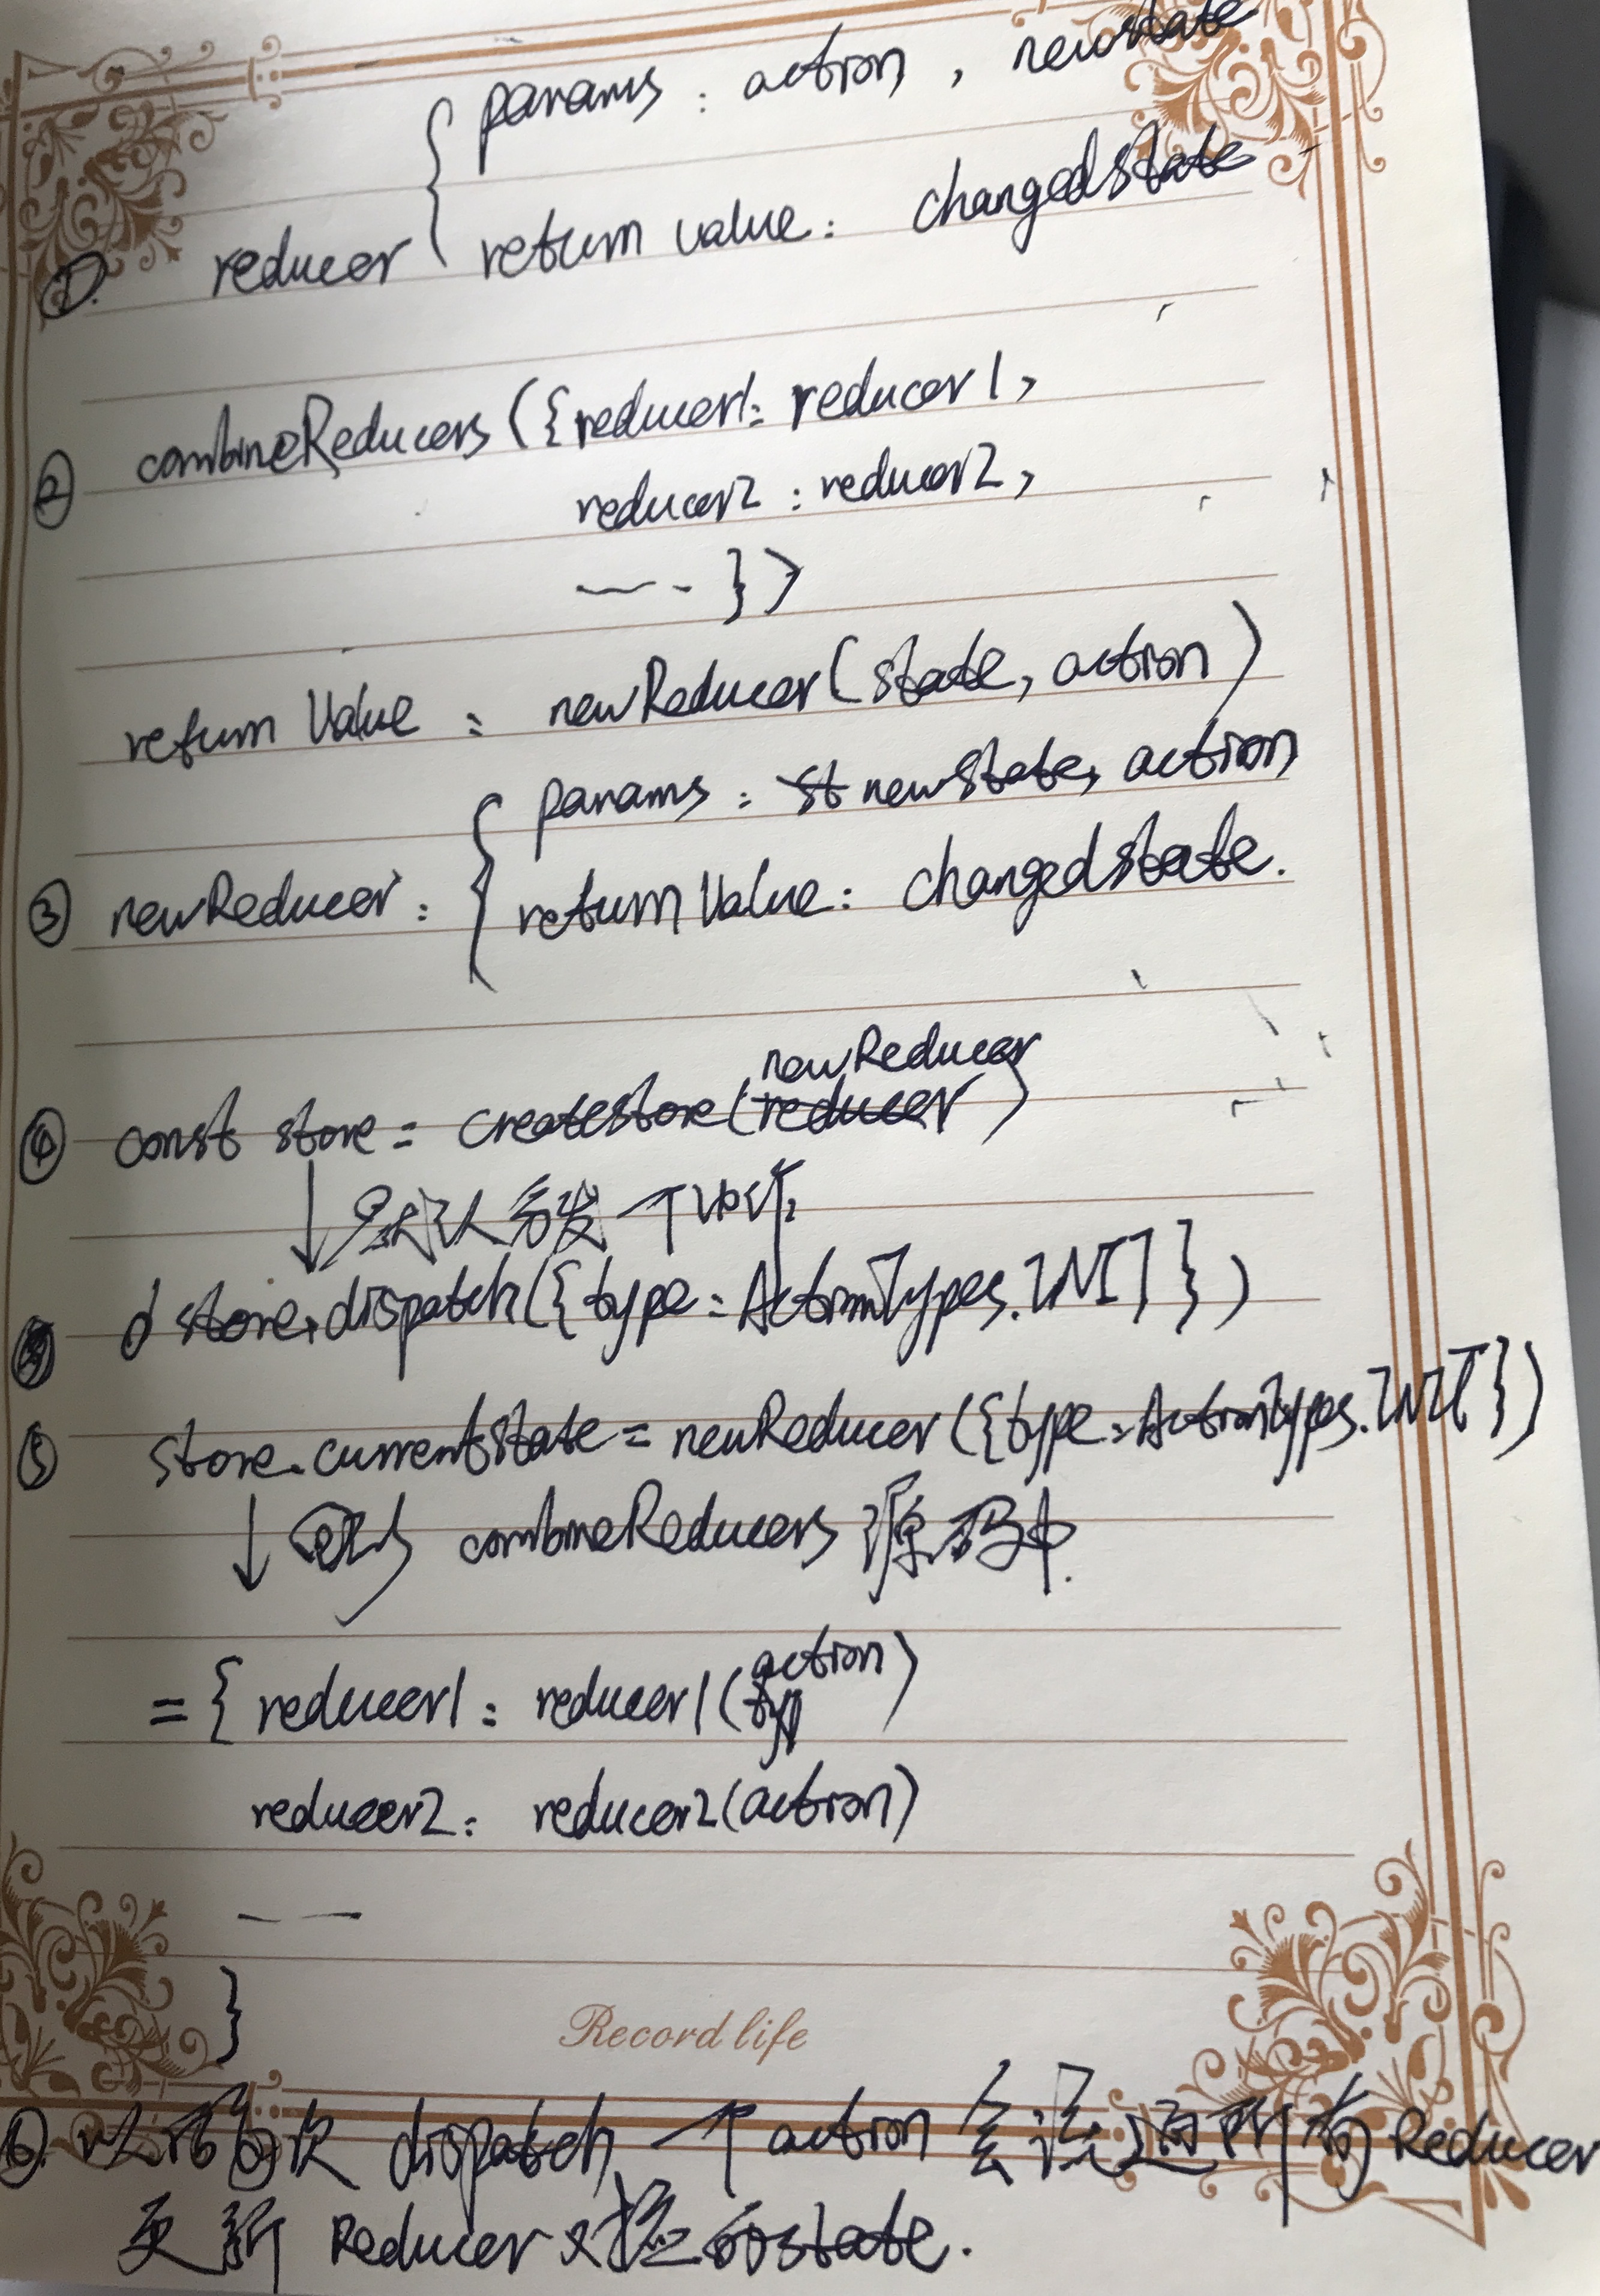 params : action , newstate
① reducer { return value : changedState
② combineReducers ({reducer1: reducer1,
reducer2 : reducer2,
---- })
return Value : newReducer(state, action)
params : st newState, action
③ newReducer : { returnValue : changedState.
newReducer
④ const store = createStore(reducer)
↓ 默认分发一个
store.dispatch({type:ActionTypes.INIT})
⑤ store.currentState = newReducer({type:ActionTypes.INIT})
↓ 回到 combineReducers 源码中.
action
= { reducer1 : reducer1(typ)
reducer2 : reducer2(action)
— —
}
Record life
⑥. 以后每次 dispatch 一个 action 会流遍所有 Reducer
更新 Reducer 对应的state.